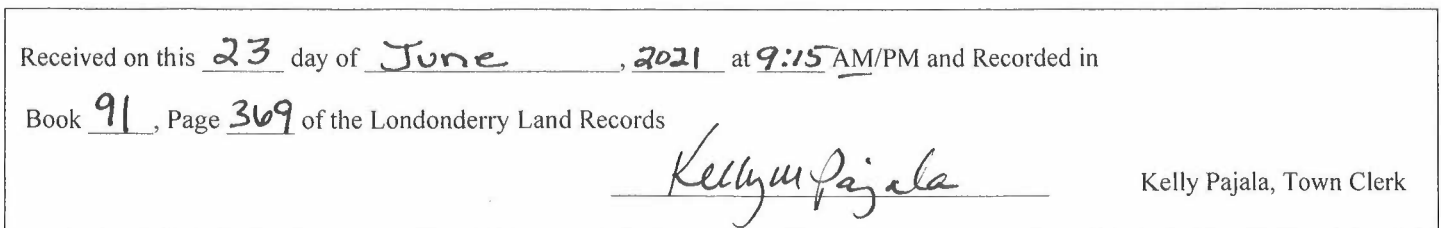 Received on this 23 day of June, 2021 at 9:15 AM/PM and Recorded in
Book 91, Page 369 of the Londonderry Land Records
Kelly M Pajala Kelly Pajala, Town Clerk